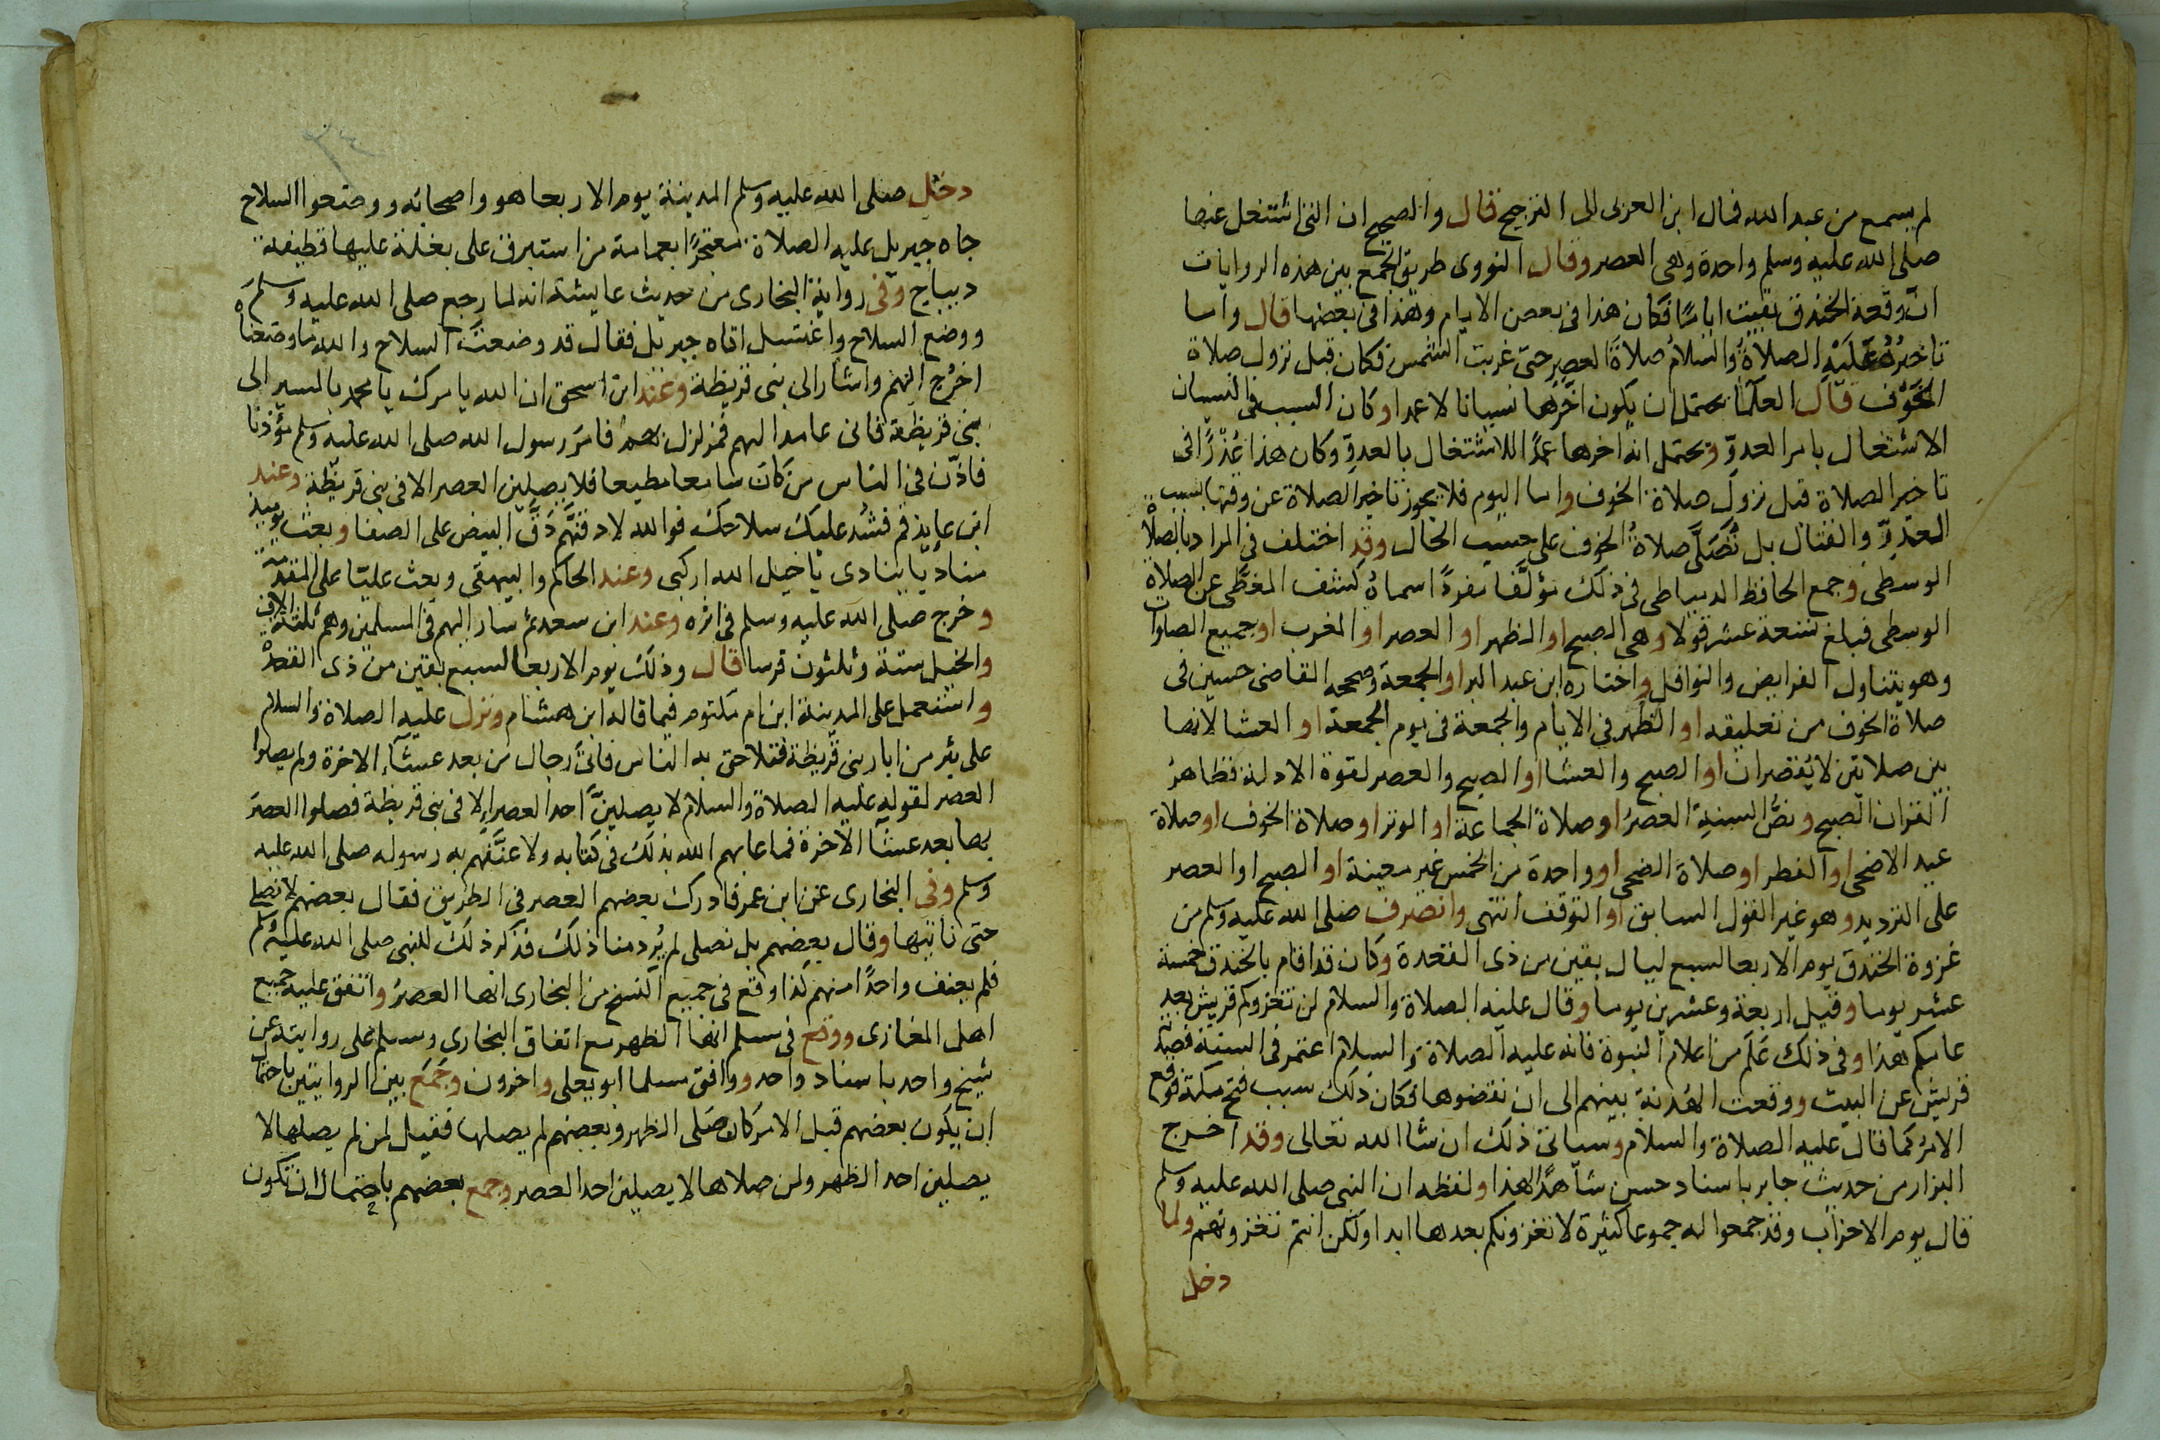 لم يسمع من عبد الله فمال ابن العربى الى الترجيح قال والصحيح ان التى اشتغل عنها
صلى الله عليه وسلم واحدة وهى العصر وقال النووى طريق الجمع بين هذه الروايات
انّ وقعة الخندق بقيت اياما فكان هذا فى بعض الايام وهذا فى بعضها قال واما
تاخيره عليه الصلاة والسلام صلاة العصر حتى غربت الشمس فكان قبل نزول صلاة
الخوف قال العلما يحتمل ان يكون اخّرها نسيانا لا عمدا وكان السبب فى النسيان
الاشتغال بامر العدوّ ويحتمل انه اخرها عمدًا للاشتغال بالعدوّ وكان هذا عذرًا فى
تاخير الصلاة قبل نزول صلاة الخوف واما اليوم فلا يجوز تاخير الصلاة عن وقتها بسبب
العدوّ والقتال بل تُصَلَّى صلاةُ الخوف على حسب الحال وقد اختلف فى المراد بالصلاة
الوسطى وجمع الحافظ الدمياطى فى ذلك مؤلَّفا مفردًا اسماه كشف المغطَّى عن الصلاة
الوسطى فبلغ تسعة عشر قولا وهى الصبح او الظهر او العصر او المغرب او جميع الصلوات
وهو يتناول الفرايض والنوافل واختاره ابن عبد البر او الجمعة وصححه القاضى حسين فى
صلاة الخوف من تعليقه او الظهر فى الايام والجمعة فى يوم الجمعة او العشا لانها
بين صلاتين لا يُقصران او الصبح والعشا او الصبح والعصر لقوة الادلة فظاهرُ
القران الصبح ونصُّ السنةِ العصرُ او صلاة الجماعة او الوتر او صلاة الخوف او صلاة
عيد الاضحى او الفطر او صلاة الضحى او واحدة من الخمس غير معينة او الصبح او العصر
على الترديد وهو غير القول السابق او التوقف انتهى وانصرف صلى الله عليه وسلم من
غزوة الخندق يوم الاربعا لسبع ليال بقين من ذى القعدة وكان قد اقام بالخندق خمسة
عشر يوما وقيل اربعة وعشرين يوما وقال عليه الصلاة والسلام لن تغزوكم قريش بعد
عامكم هذا وفى ذلك عَلَم من اعلام النبوة فانه عليه الصلاة والسلام اعتمر فى السنة فصدّته
قريش عن البيت ووقعت الهُدنة بينهم الى ان نقضوها فكان ذلك سبب فتح مكة فوقع
الامر كما قال عليه الصلاة والسلام وسياتى ذلك ان شا الله تعالى وقد اخرج
البزار من حديث جابر باسناد حسن شاهدًا لهذا ولفظه ان النبى صلى الله عليه وسلم
قال يوم الاحزاب وقد جمعوا له جموعا كثيرة لا تغزونكم بعدها ابدا ولكن انتم تغزونهم ولما
دخل
دخل صلى الله عليه وسلم المدينة يوم الاربعا هو واصحابه ووضعوا السلاح
جاه جبريل عليه الصلاة معتجرًا بعمامة من استبرق على بغلة عليها قطيفة
ديباج وفى رواية البخارى من حديث عايشة انه لما رجع صلى الله عليه وسلم
ووضع السلاح واغتسل اتاه جبريل فقال قد وضعت السلاح والله ما وضعناه
اخرُج اليهم واشار الى بنى قريظة وعند ابن اسحق ان الله يامرك يا محمد بالمسير الى
بنى قريظة فانى عامد اليهم فمزلزل بهم فامر رسول الله صلى الله عليه وسلم مؤذنا
فاذّن فى الناس من كان سامعا مطيعا فلا يصلين العصر الا فى بنى قريظة وعند
ابن عايذ قم فشُد عليك سلاحك فوالله لادقنّهم دَقَّ البيض على الصفا وبعث يوميذ
مناديًا ينادى يا خيل الله اركبى وعند الحاكم والبيهقى وبعث عليّا على المقدّمة
وخرج صلى الله عليه وسلم فى اثره وعند ابن سعد ثم سار اليهم فى المسلمين وهم ثلثة الاف
والخيل ستة وثلثون فرسا قال وذلك يوم الاربعا لسبع بقين من ذى القعدة
واستعمل على المدينة ابن ام مكتوم فيما قاله ابن هشام ونزل عليه الصلاة والسلام
على بئر من ابار بنى قريظة فتلاحق به الناس فاتى رجال من بعد عشآء الاخرة ولم يصلوا
العصر لقوله عليه الصلاة والسلام لا يصلينَّ احد العصر الا فى بنى قريظة فصلوا العصر
بها بعد عشآ الاخرة فما عابهم الله بذلك فى كتابه ولا عنَّفهم به رسوله صلى الله عليه
وسلم وفى البخارى عن ابن عمر فادرك بعضهم العصر فى الطريق فقال بعضهم لا نصلى
حتى ناتيها وقال بعضهم بل نصلى لم يُرد منا ذلك فذكر ذلك للنبى صلى الله عليه وسلم
فلم يعنف واحدًا منهم كذا وقع فى جميع النسخ من البخارى انها العصرُ واتفق عليه جميع
اهل المغازى ووقع فى مسلم انها الظهر مع اتفاق البخارى ومسلم على روايته عن
شيخ واحد باسناد واحد ووافق مسلما ابو يعلى واخرون وجُمع بين الروايتين باحتمال
ان يكون بعضهم قبل الامر كان صلى الظهر وبعضهم لم يصلها فقيل لمن لم يصلها لا
يصلين احد الظهر ولمن صلاها لا يصلين احد العصر وجمع بعضهم باحتمال ان تكون